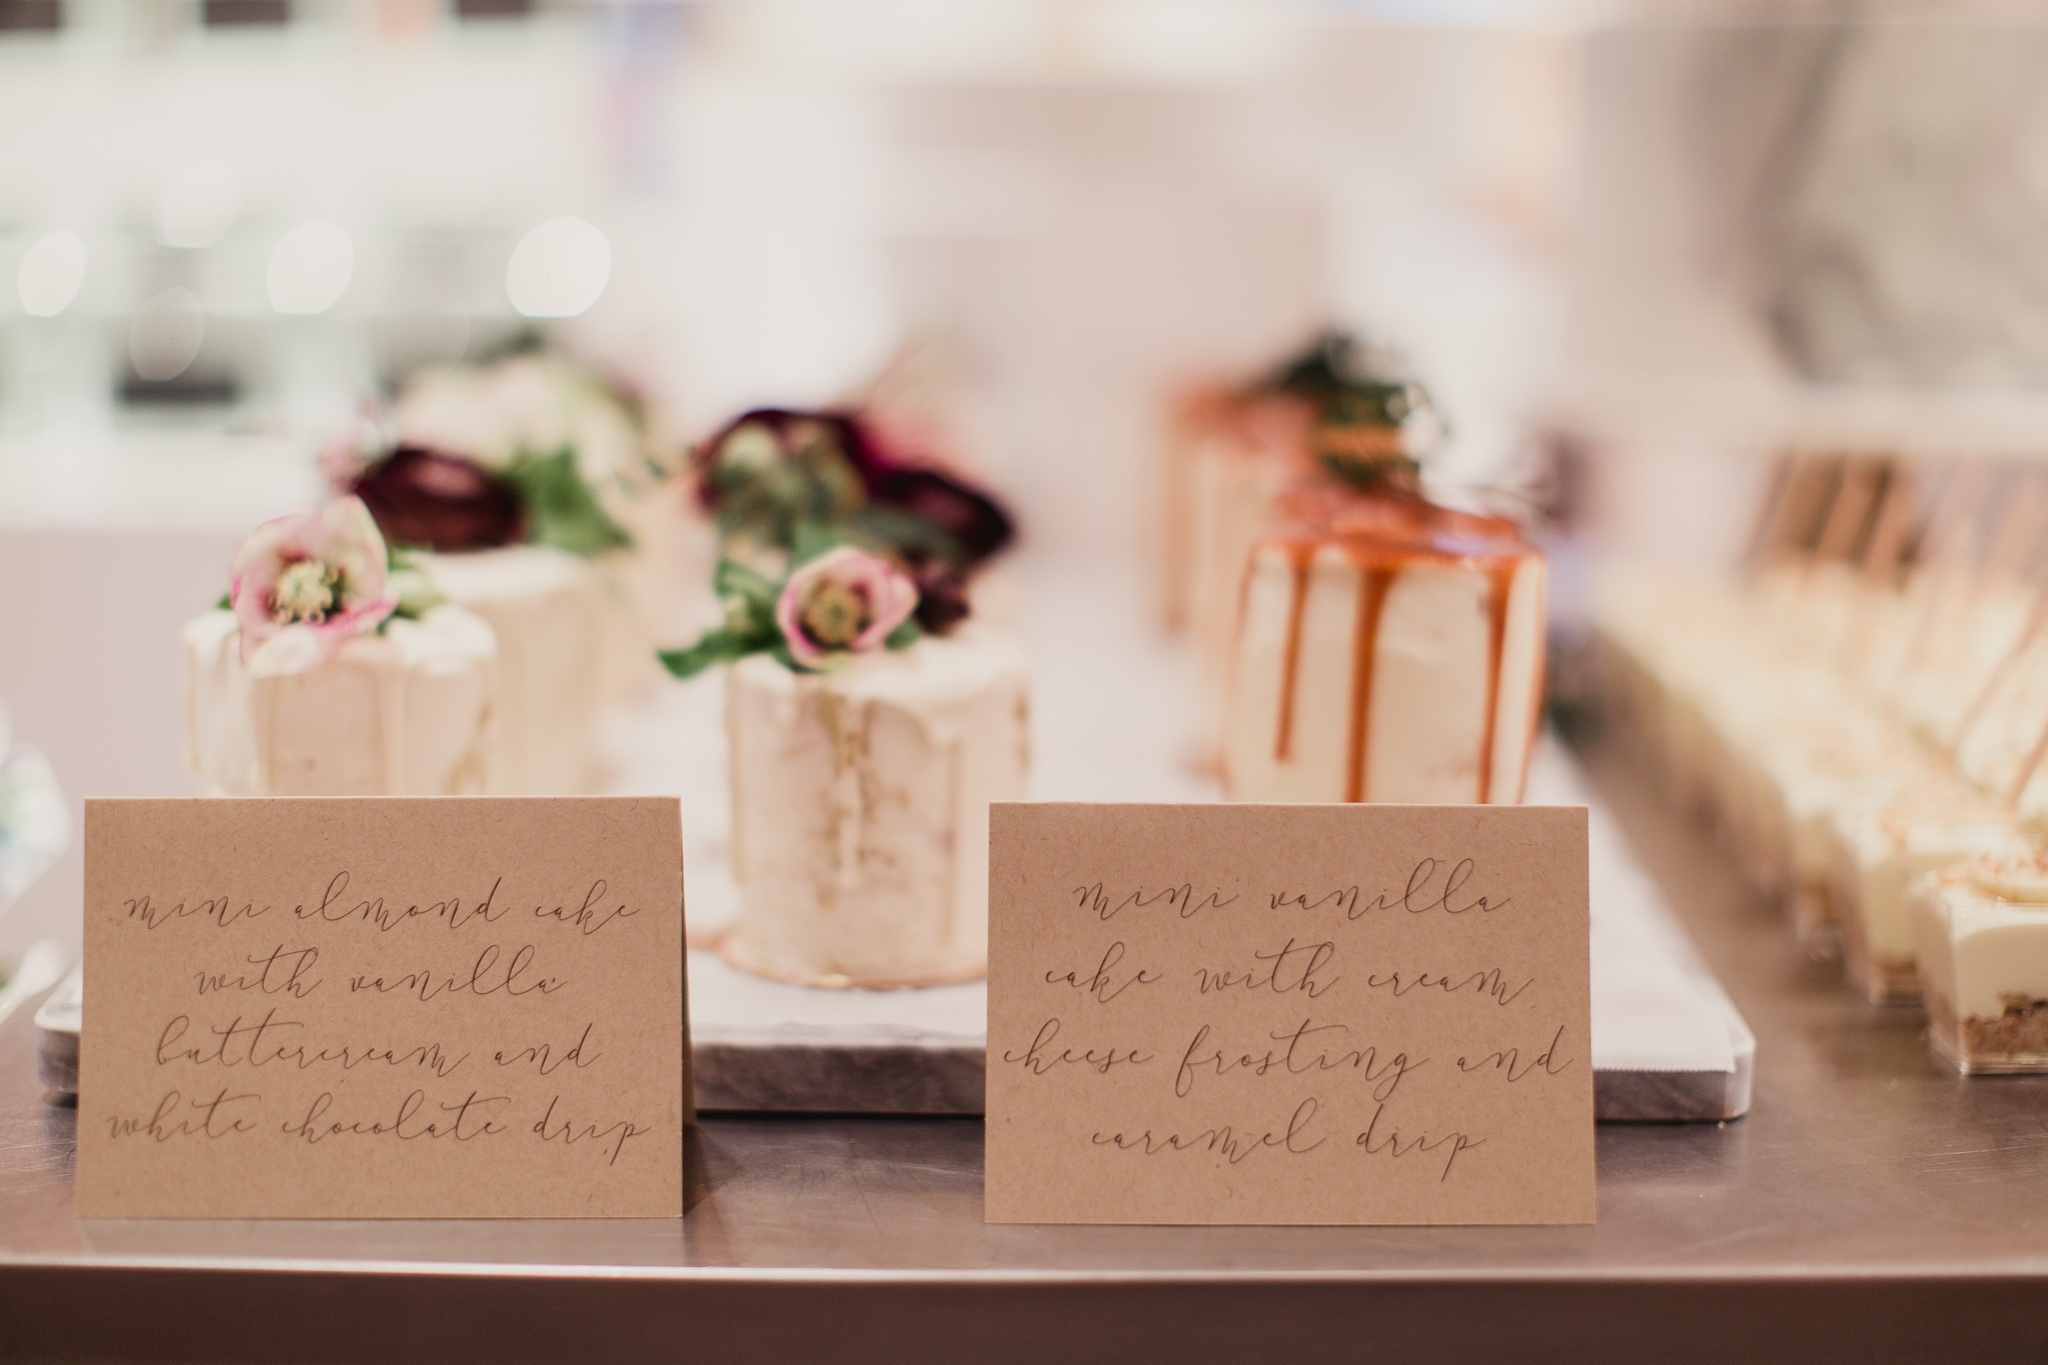 mini almond cake
with vanilla
buttercream and
white chocolate drip
mini vanilla
cake with cream
cheese frosting and
caramel drip